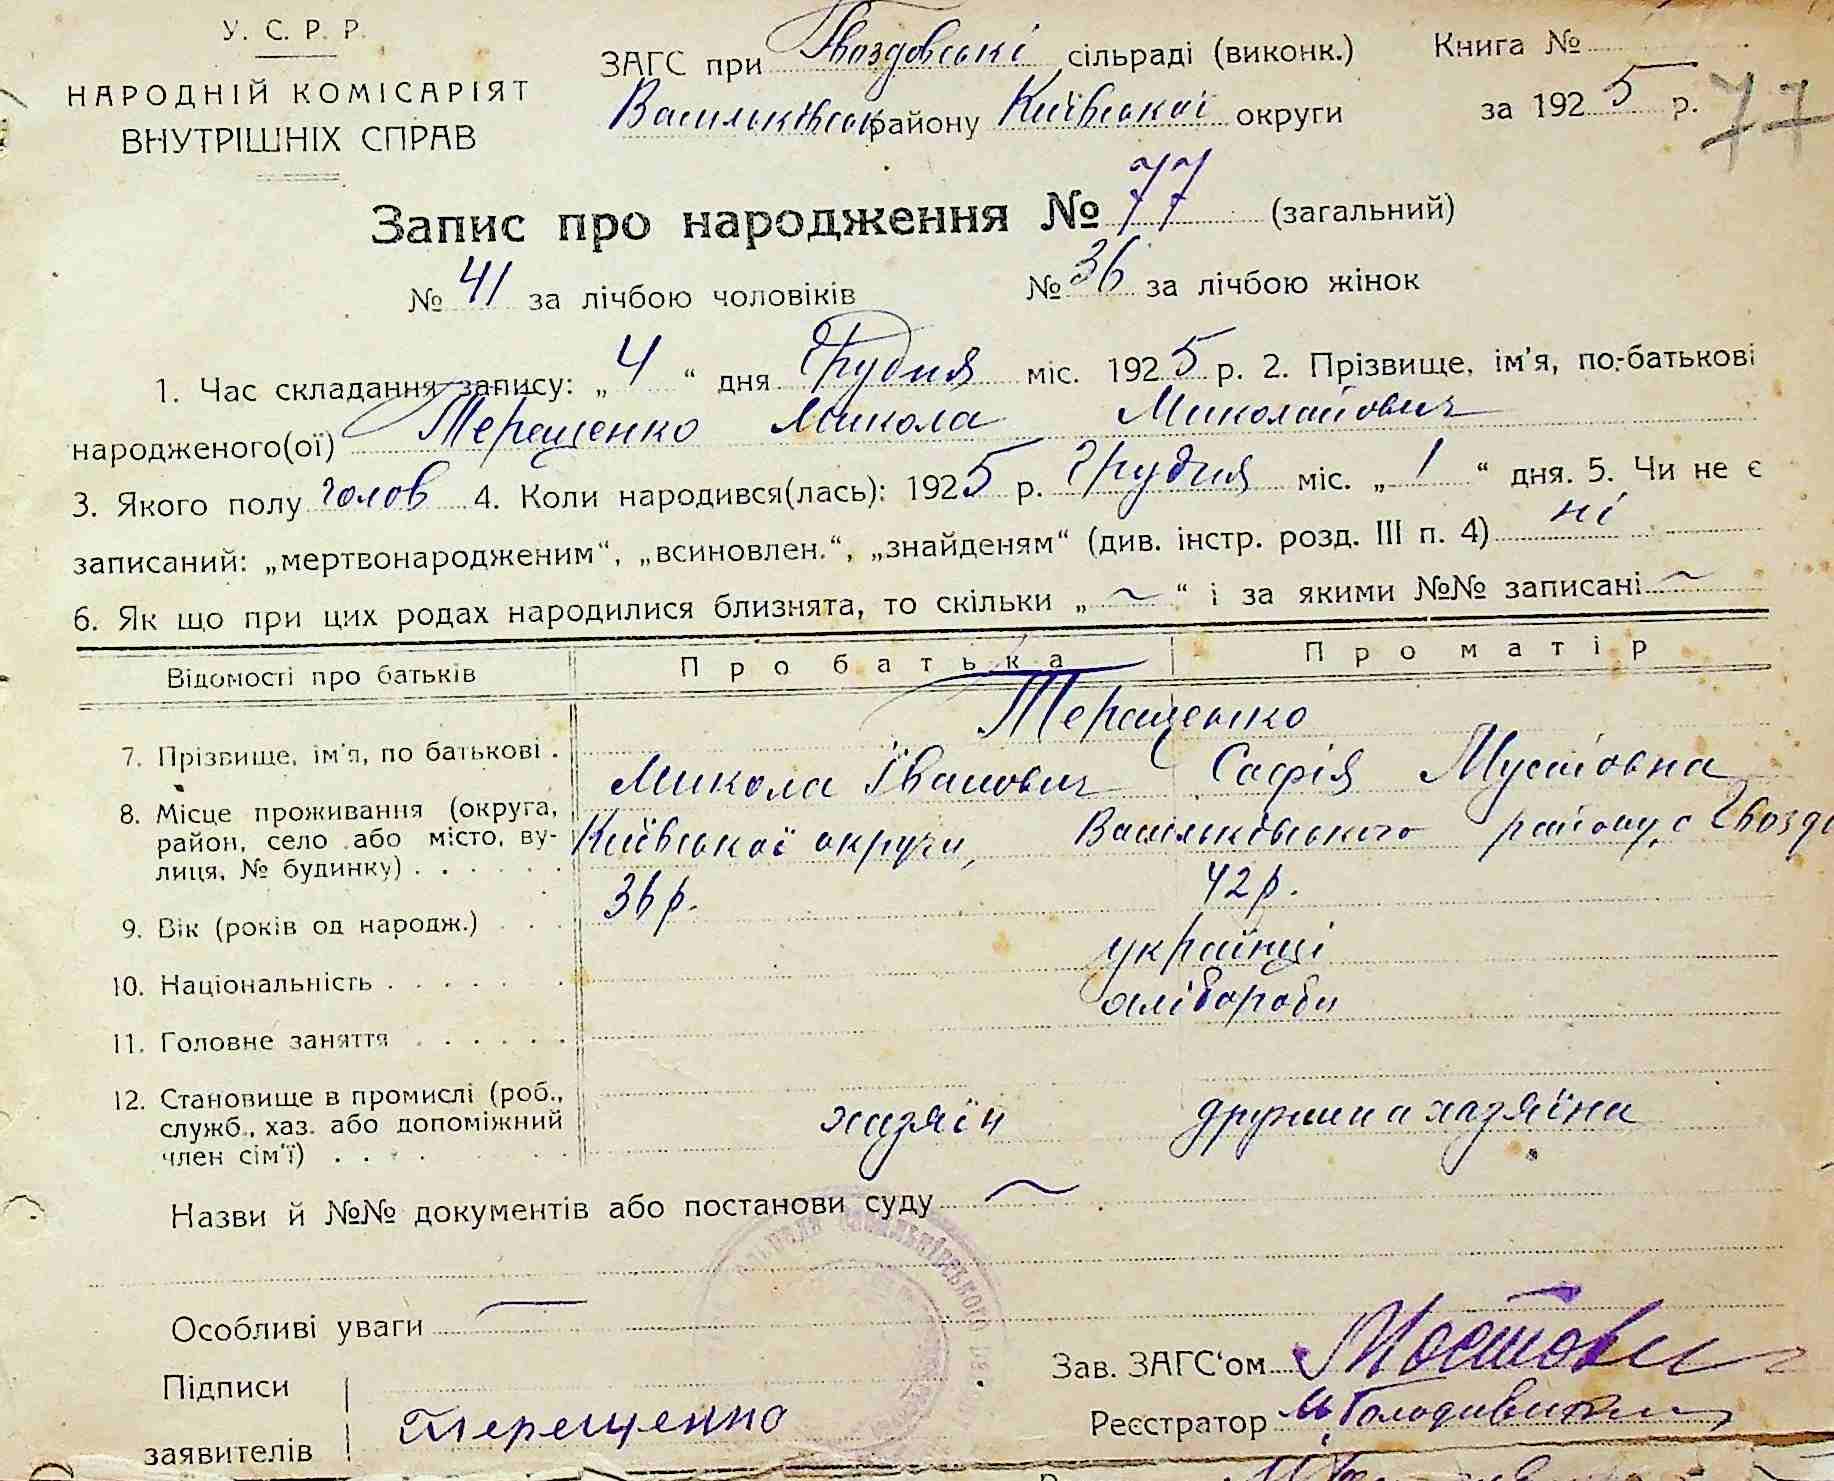 У. С. Р. Р.
НАРОДНІЙ КОМІСАРІЯТ
ВНУТРІШНІХ СПРАВ
ЗАГС при Гвоздовські сільраді (виконк.)
Васильківськ району Київської округи
Книга №
за 1925 р.
77
Запис про народження № 77 (загальний)
№ 41 за лічбою чоловіків № 36 за лічбою жінок
1. Час складання запису: „4“ дня Грудня міс. 1925 р. 2. Прізвище, ім'я, по-батькові
народженого(ої) Терещенко Микола Миколайович
3. Якого полу чолов 4. Коли народився(лась): 1925 р. Грудня міс. „1“ дня. 5. Чи не є
записаний: „мертвонародженим“, „всиновлен.“, „знайденям“ (див. інстр. розд. III п. 4) ні
6. Як що при цих родах народилися близнята, то скільки „~“ і за якими №№ записані ~
Відомості про батьків Про батька Про матір
Терещенко
7. Прізвище, ім'я, по батькові . Микола Іванович Софія Мустовна
8. Місце проживання (округа,
район, село або місто, ву-
лиця, № будинку) . . . . . . Київської округи, Васильківського району, с Гвозд
9. Вік (років од народж.) . . . 36 р. 42 р.
10. Національність . . . . . . . українці
11. Головне заняття . . . . . . хлібороби
12. Становище в промислі (роб.,
служб., хаз. або допоміжний
член сім'ї) . . . . хазяїн дружина хазяїна
Назви й №№ документів або постанови суду ~
Особливі уваги —
Підписи
заявителів Терещенко
Зав. ЗАГС'ом
Реєстратор